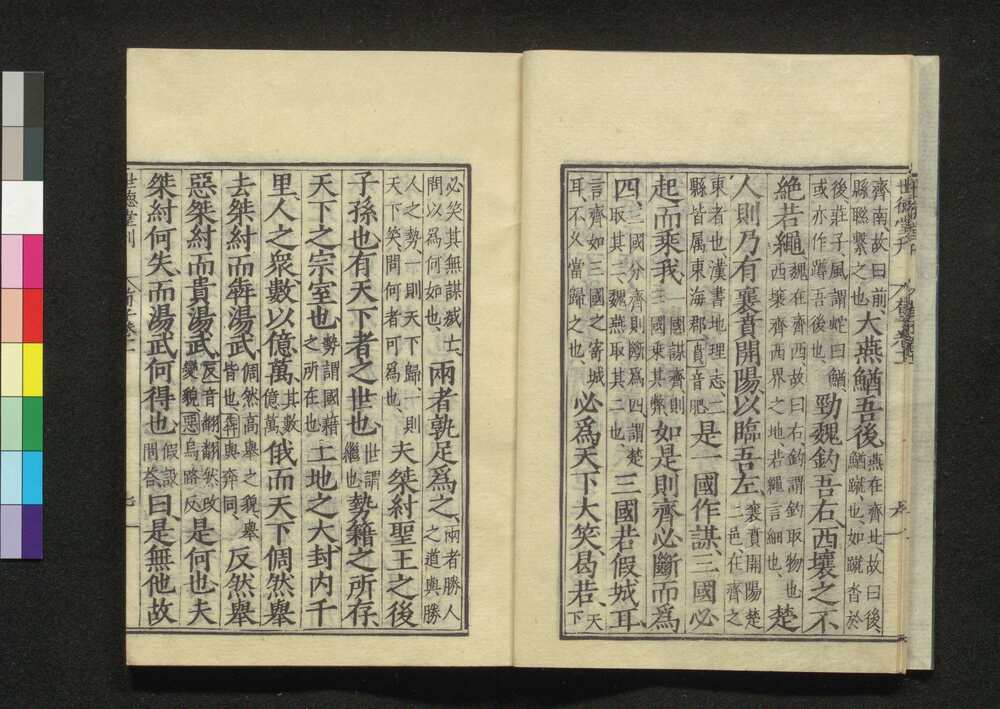 齊南故曰前、縣聯繫之也、大燕鰌吾後、燕在齊北故曰後、鰌蹴也、如蹴沓於
後、莊子風謂蛇曰鰌或亦作蹲吾後也、勁魏鈎吾右、西壤之不
絶若繩、魏在齊西故曰右、鈎謂鈎取物也、西壤齊西界之地、若繩言細也、楚
人則乃有襄賁開陽以臨吾左、襄賁開陽楚二邑在齊之
東者也漢書地理志二縣皆屬東海郡、賁音肥是一國作謀三國必
起而乘我、一國謀齊則三國乘其弊、如是則齊必斷而爲
四、三國分齊則斷爲四、謂楚取其二、魏燕取其二也、三國若假城耳、
言齊如三國之寄城耳、不久當歸之也必爲天下大笑曷若、天下
必笑其無謀滅亡、問以爲何如也兩者孰足爲之、兩者勝人之道與勝
人之勢一則天下歸一則天下笑、問何者可爲也、夫桀紂聖王之後
子孫也有天下者之世也、世謂繼也勢籍之所存、
天下之宗室也、勢謂國籍之所在也土地之大封内千
里、人之衆數以億萬、其數億萬俄而天下倜然舉
去桀紂而犇湯武、倜然高舉之貌、舉皆也、犇與奔同、反然舉
惡桀紂而貴湯武、反音翻翻然改變貌惡烏路反是何也、夫
桀紂何失、而湯武何得也、假設問答曰、是無他故
世德堂刊
七